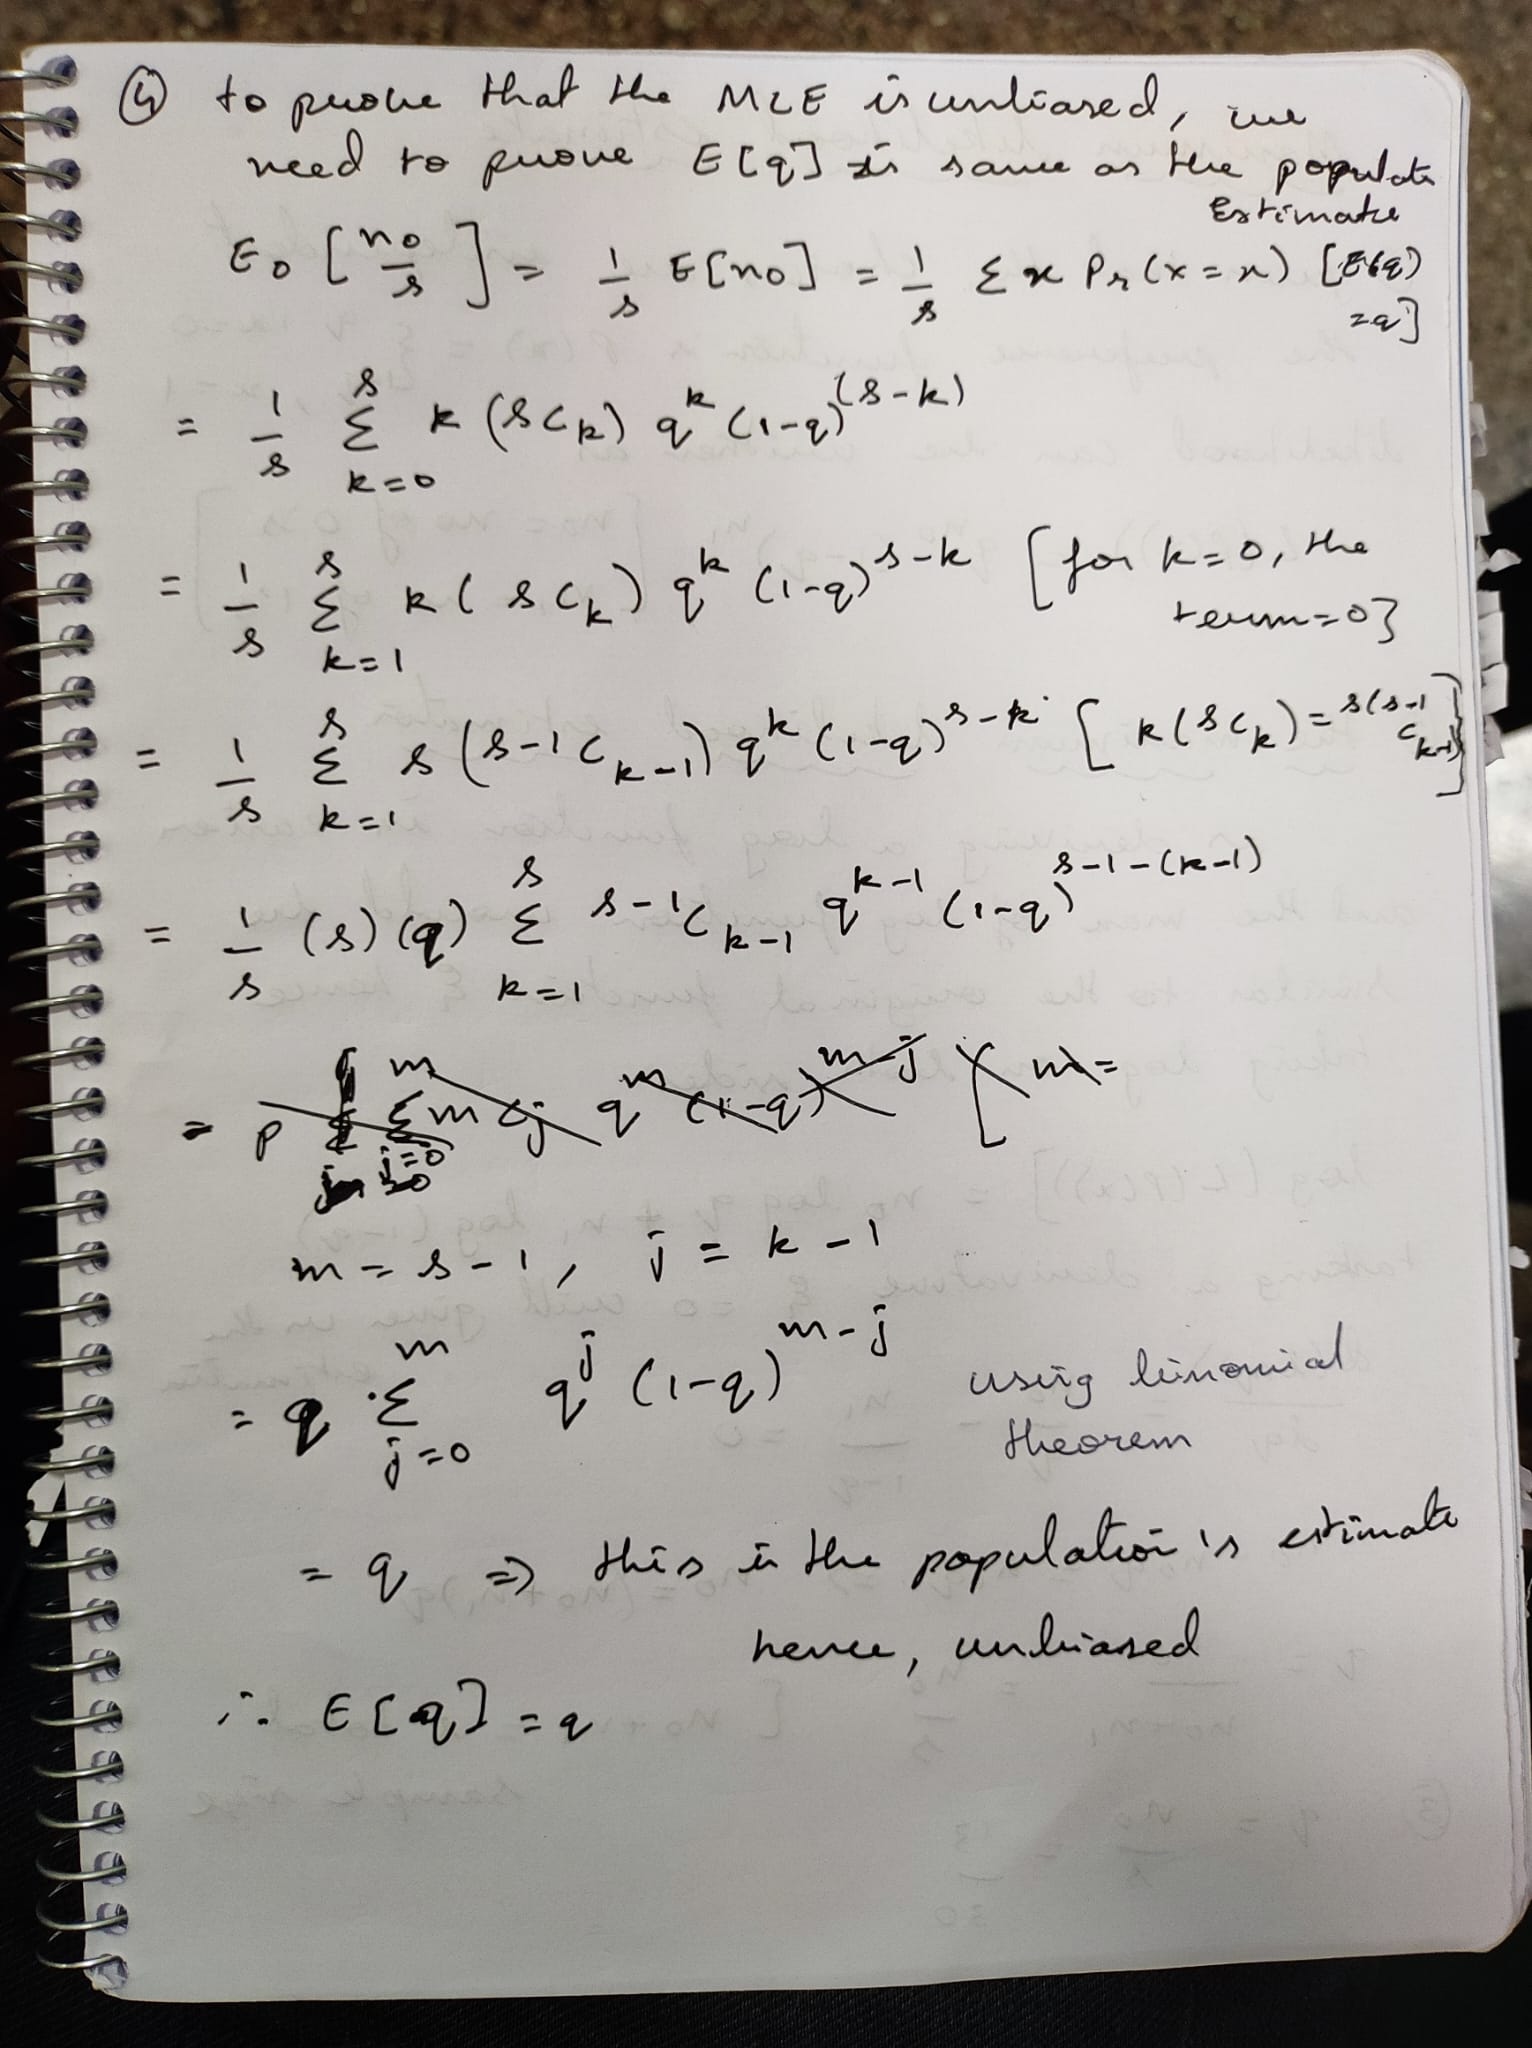 ④ to prove that the MLE is unbiased, we
need to prove E[q] is same as the populatn
Estimate
E₀ [n₀/s] = 1/s E[n₀] = 1/s Σ x Pr(x=x) [E(q)
=q]
= 1/s Σ_{k=0}^{s} k (sC_k) q^k (1-q)^{(s-k)}
= 1/s Σ_{k=1}^{s} k (sC_k) q^k (1-q)^{s-k} [for k=0, the
term=0}
= 1/s Σ_{k=1}^{s} s (s-1C_{k-1}) q^k (1-q)^{s-k} [k(sC_k) = s(s-1C_{k-1})]
= 1/s (s)(q) Σ_{k=1}^{s} s-1C_{k-1} q^{k-1} (1-q)^{s-1-(k-1)}
= p Σ_{j=0}^{m} mC_j q^m (1-q)^{m-j} [m=
m = s-1, j = k-1
= q · Σ_{j=0}^{m} q^j (1-q)^{m-j} using binomial
theorem
= q => this is the population's estimate
hence, unbiased
∴ E[q] = q